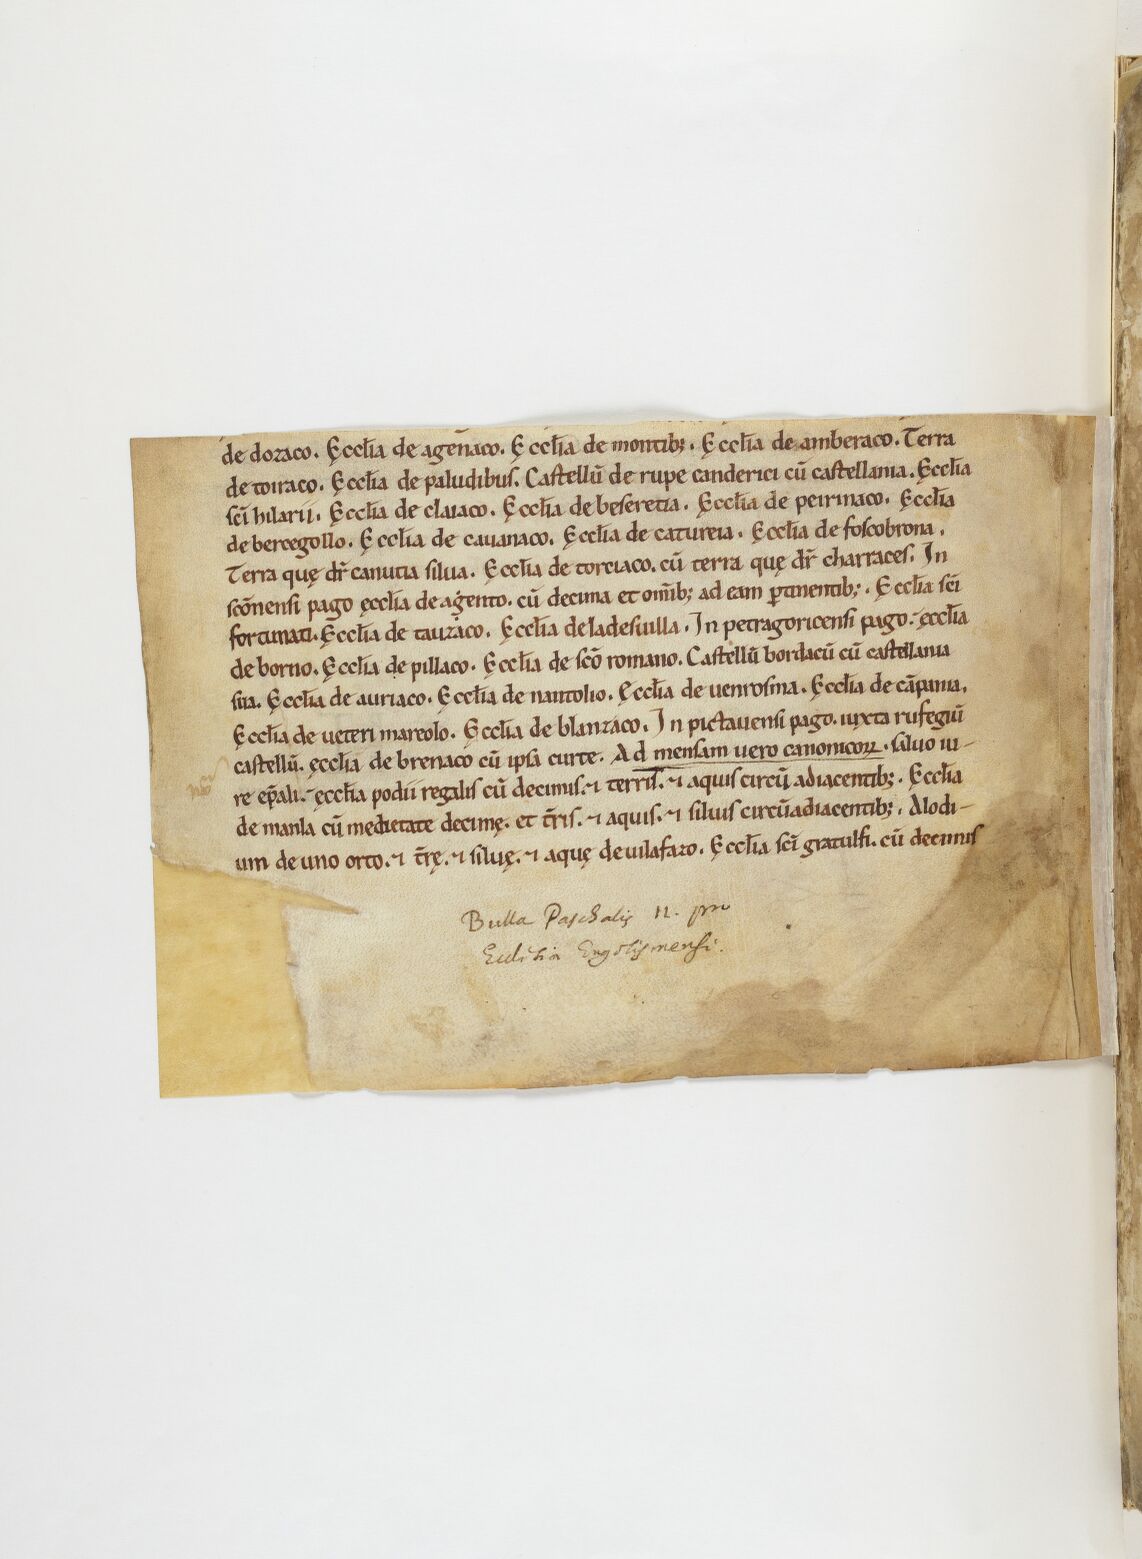 de dozaco. Ęccłia de agenaco. Ęccłia de montibꝫ. Ęccłia de amberaco. Terra
de toiraco. Ęccłia de paludibus. Castellū de rupe canderici cū castellania. Ęccłia
sc̄i hilarii. Ęccłia de claiaco. Ęccłia de beseretia. Ęccłia de peirinaco. Ęccłia
de bercegollo. Ęccłia de cauanaco. Ęccłia de catureia. Ęccłia de foscobrona.
Terra quę dr̄ canutia silua. Ęccłia de torciaco. cū terra quę dr̄ charraces. In
scōnensi pago ęccłia de agento. cū decima et om̄ibꝫ ad eam ꝑtinentibꝫ. Ęccłia sc̄i
fortunati. Ęccłia de tauzaco. Ęccłia de ladesuilla. In petragoricensi pago. ęccłia
de borno. Ęccłia de pillaco. Ęccłia de sc̄o romano. Castellū bordacū cū castellania
sua. Ęccłia de auriaco. Ęccłia de nantolio. Ęccłia de uenrosma. Ęccłia de cāpania.
Ęccłia de ueteri mareolo. Ęccłia de blanzaco. In pictauensi pago. iuxta rufegiū
castellū. ęccłia de brenaco cū ipsa curte. Ad mensam uero canonicoꝝ. saluo iu-
re ep̄ali. ęccłia podii regalis cū decimis. ⁊ terris. ⁊ aquis circū adiacentibꝫ. Ęccłia
de manla cū medietate decimę. et t̄ris. ⁊ aquis. ⁊ siluis circūadiacentibꝫ. Alodi-
um de uno orto. ⁊ t̄rę. ⁊ siluę. ⁊ aquę de uilafaro. Ęccłia sc̄i gratulfi. cū decimis
Bulla Paschalis II. pro
Ecclesia Engolismensi.